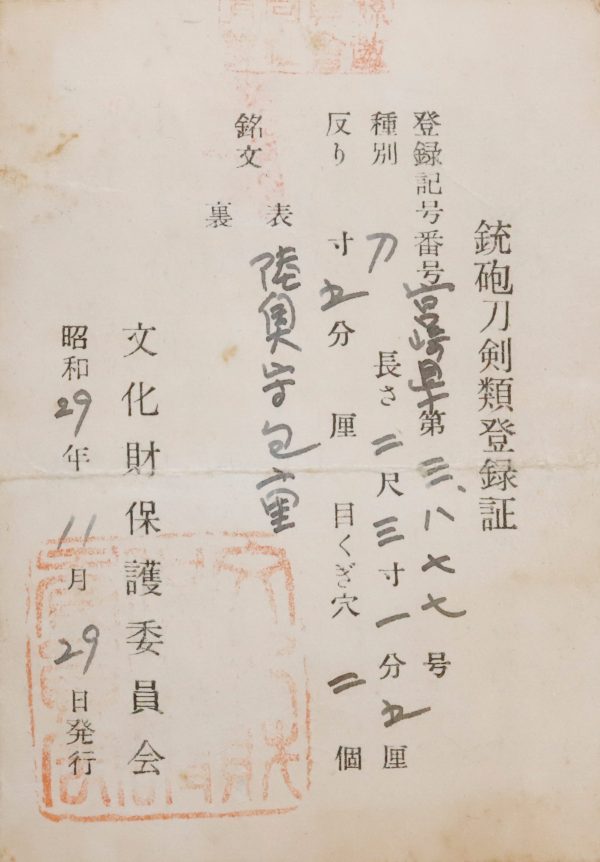 銃砲刀剣類登録証
登録記号番号宮崎県第三、八七七号
種別 刀 長さ二尺三寸一分五厘
反り 寸五分 厘 目くぎ穴 二個
銘文 表 陸奥守包重
裏
文化財保護委員会
昭和29年11月29日発行